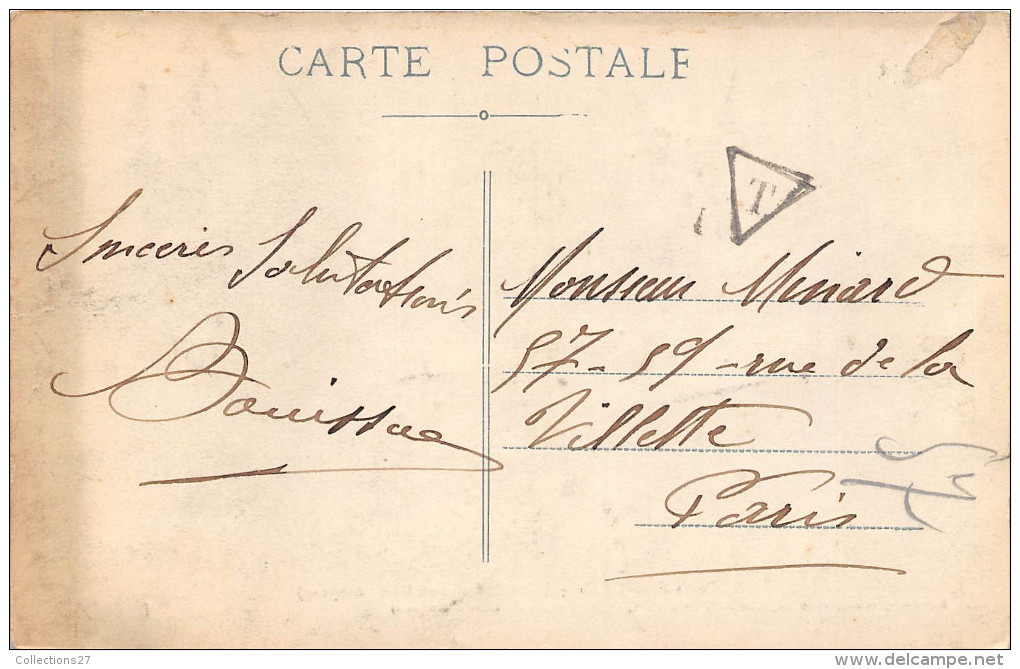 CARTE POSTALE
T
Sincères Salutations
Monsieur Minard
57-59-rue de la
Villette
Paris
Collections27
www.delcampe.net